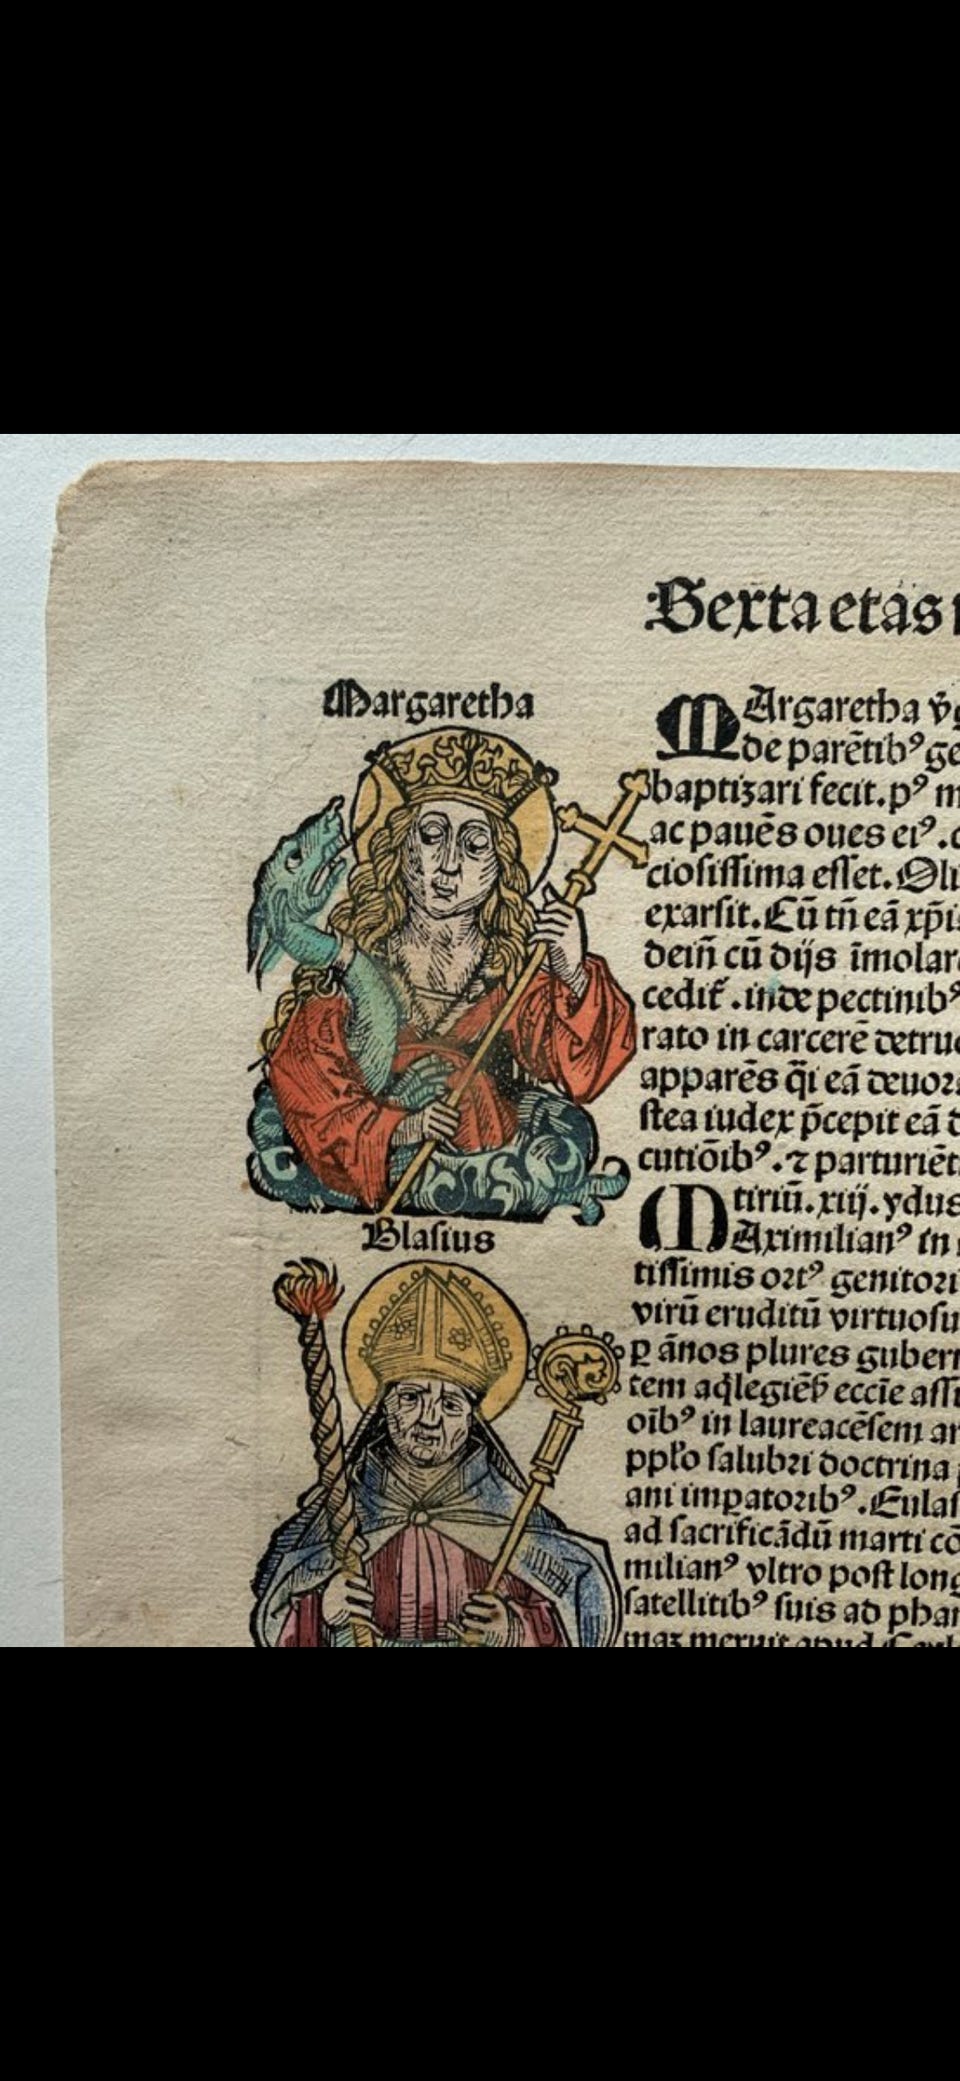 Sexta etas
Margaretha
MArgaretha v̄g
de parētibꝰ ge
baptizari fecit. pꝰ m
ac pauēs oues eiꝰ. c
ciosissima esset. Oli
exarsit. Cū tn̄ eā xp̄is
dein̄ cū dijs īmolar
cedit̄. inde pectinibꝰ
rato in carcerē detruc
apparēs q̄i eā deuor
stea iudex p̄cepit eā d
cutiōibꝰ. ⁊ parturiēt
tiriū. xiij. ydus
Blasius
MAximilianꝰ in
tissimis ortꝰ genitori
virū eruditū virtuosu
ꝑ ānos plures gubern
tem
eccīe assi
oībꝰ in laureacēsem ar
pplo salubri doctrina
ani imꝑatoribꝰ. Eulas
ad sacrificādū marti cō
milianꝰ vltro post long
satellitibꝰ suis ad phan
meruit apud